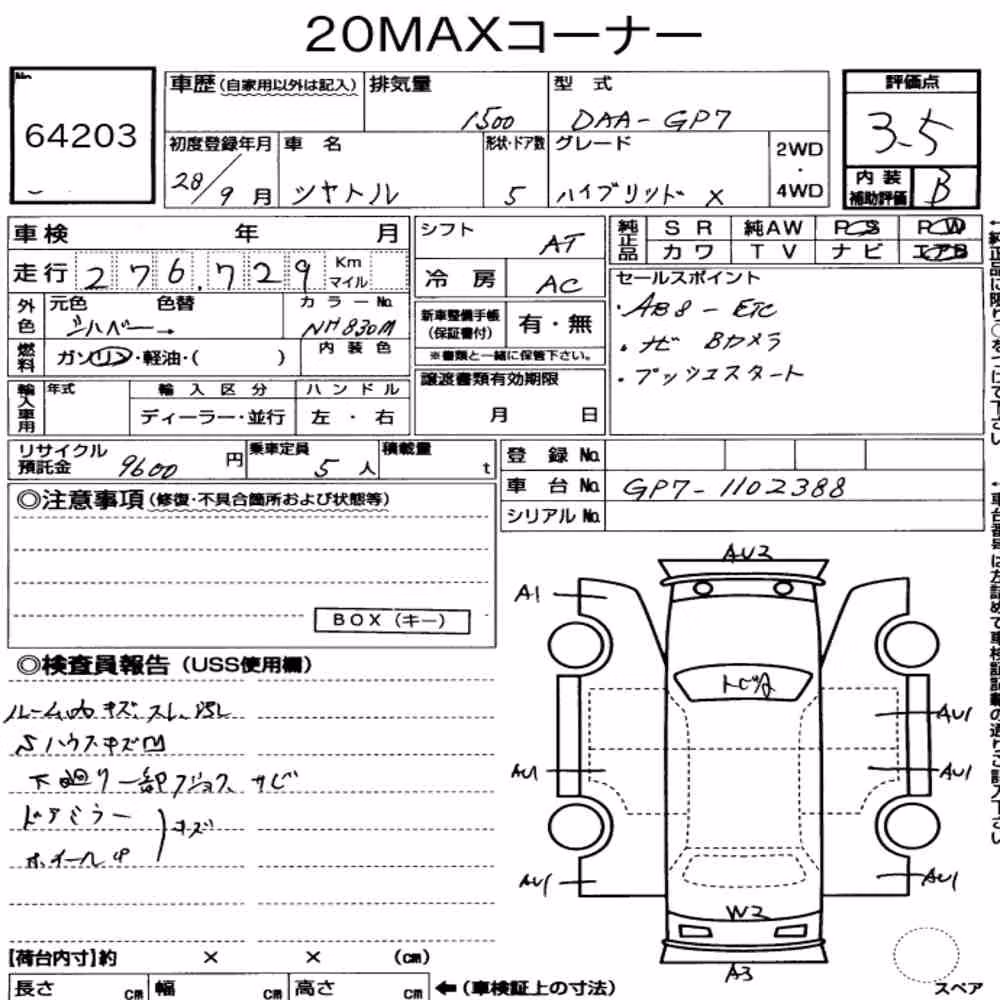 20MAXコーナー
No.
64203
車歴(自家用以外は記入)
排気量 1500
型式 DAA-GP7
評価点
3.5
初度登録年月 28/9月
車名 シャトル
形状・ドア数 5
グレード ハイブリッド X
2WD
・
4WD
内装
補助評価
B
車検 年 月
走行 276,729 Km
マイル
シフト AT
冷房 AC
純正品 SR 純AW PS PW
カワ TV ナビ エアB
外色 元色 色替 カラーNo.
シルバー→ NH830M
燃料 ガソリン・軽油・( )
内装色
新車整備手帳
(保証書付)
有・無
※書類と一緒に保管下さい。
セールスポイント
・AB8-ETC
・ナビ Bカメラ
・プッシュスタート
輸入車用 年式 輸入区分 ハンドル
ディーラー・並行 左・右
譲渡書類有効期限
月 日
リサイクル
預託金
9600 円
乗車定員 5人
積載量 t
登録No.
車台No. GP7-1102388
シリアルNo.
◎注意事項(修復・不具合箇所および状態等)
BOX(キー)
◎検査員報告(USS使用欄)
ルーム内キズ、スレ、汚レ
Sハウスキズ凹
下廻り一部フジョク、サビ
ドアミラー
ホイール4
)キズ
AU2
A1
トビA
AU1
AU1
AU1
AU1
AU1
W2
A3
スペア
【荷台内寸】約 × × (cm)
長さ cm 幅 cm 高さ cm
←(車検証上の寸法)